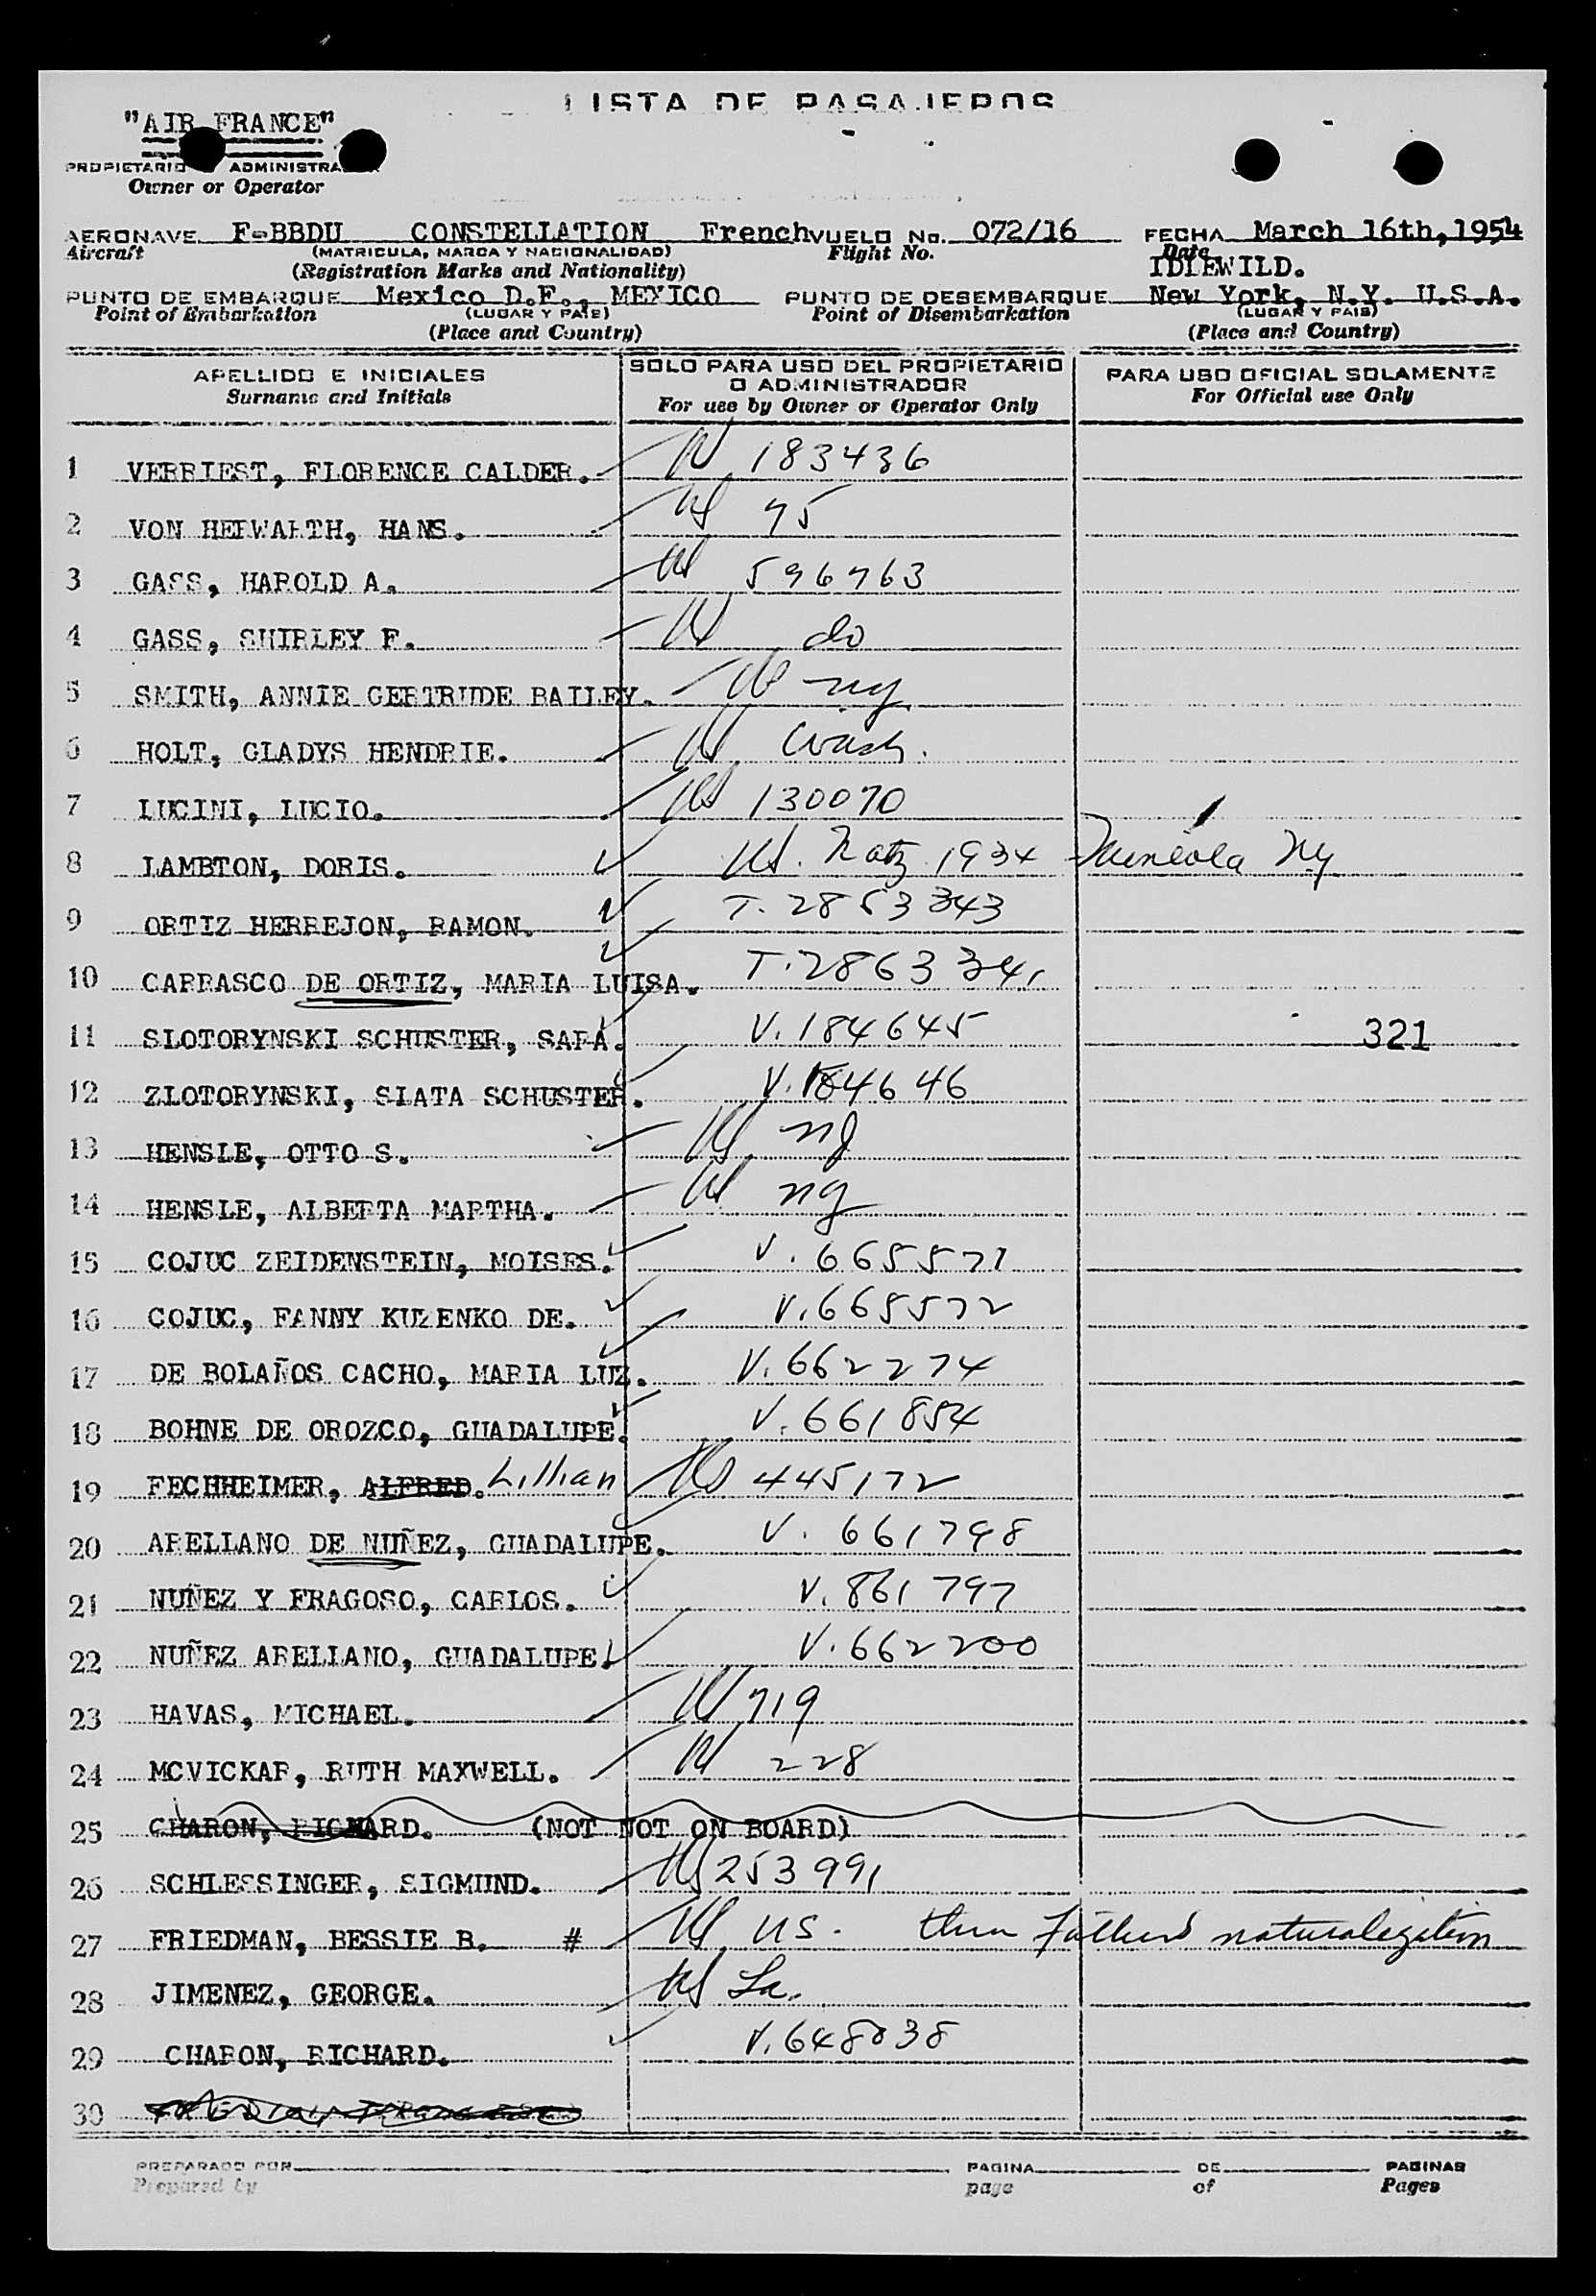 LISTA DE PASAJEROS
"AIR FRANCE"
PROPIETARIO ADMINISTRA
Owner or Operator
AERONAVE F-BBDU CONSTELLATION French VUELO No. 072/16 FECHA March 16th, 1954
Aircraft (MATRICULA, MARCA Y NACIONALIDAD) Flight No. Date
(Registration Marks and Nationality) IDLEWILD.
PUNTO DE EMBARQUE Mexico D.F., MEXICO PUNTO DE DESEMBARQUE New York, N.Y. U.S.A.
Point of Embarkation (LUGAR Y PAIS) Point of Disembarkation (LUGAR Y PAIS)
(Place and Country) (Place and Country)
APELLIDO E INICIALES SOLO PARA USO DEL PROPIETARIO O ADMINISTRADOR PARA USO OFICIAL SOLAMENTE
Surname and Initials For use by Owner or Operator Only For Official use Only
1 VERRIEST, FLORENCE CALDER. US 183436
2 VON HERWARTH, HANS. US 75
3 GASS, HAROLD A. US 596763
4 GASS, SHIRLEY F. US do
5 SMITH, ANNIE GERTRUDE BAILEY. US ny.
6 HOLT, GLADYS HENDRIE. US Wash.
7 LUCINI, LUCIO. US 130070
8 LAMBTON, DORIS. US. Natz 1934 Mineola Ny
9 ORTIZ HERREJON, RAMON. T. 2853343
10 CARRASCO DE ORTIZ, MARIA LUISA. T. 2863341
11 SLOTORYNSKI SCHUSTER, SARA. V. 184645 321
12 ZLOTORYNSKI, SLATA SCHUSTER. V. 184646
13 HENSLE, OTTO S. US nj
14 HENSLE, ALBERTA MARTHA. US ny
15 COJUC ZEIDENSTEIN, MOISES. V. 665571
16 COJUC, FANNY KUZENKO DE. V. 665572
17 DE BOLAÑOS CACHO, MARIA LUZ. V. 662274
18 BOHNE DE OROZCO, GUADALUPE. V. 661854
19 FECHHEIMER, ALFRED. Lillian US 445172
20 ARELLANO DE NUÑEZ, GUADALUPE. V. 661798
21 NUÑEZ Y FRAGOSO, CARLOS. V. 861797
22 NUÑEZ ARELLANO, GUADALUPE. V. 662200
23 HAVAS, MICHAEL. US 719
24 MCVICKAR, RUTH MAXWELL. US 228
25 CHARON, RICHARD. (NOT NOT ON BOARD)
26 SCHLESSINGER, SIGMUND. US 253991
27 FRIEDMAN, BESSIE B. # US US. thru Fathers naturalization
28 JIMENEZ, GEORGE. US La.
29 CHARON, RICHARD. V. 648038
30
PREPARADO POR PAGINA DE PAGINAS
Prepared by page of Pages